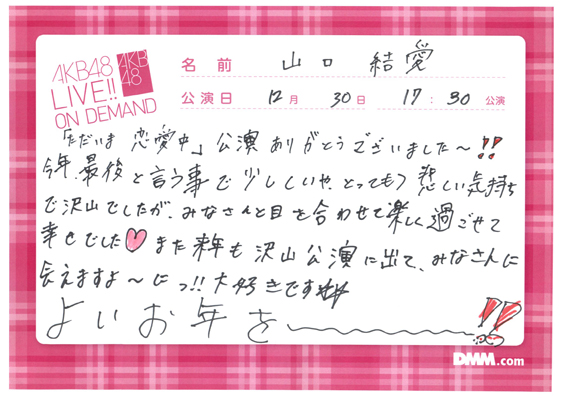 AKB48
LIVE!!
ON DEMAND
AKB
48
名前 山口 結愛
公演日 12月 30日 17:30 公演
「ただいま 恋愛中」公演ありがとうございました〜!!
今年、最後と言う事で少ししいや、とっても 悲しい気持ち
で沢山でしたが、みなさんと目を合わせて楽しく過ごせて
幸せでした♡ また来年も沢山公演に出て、みなさんに
会えますよ〜にっ!!大好きです
よいお年を〜!!
DMM.com